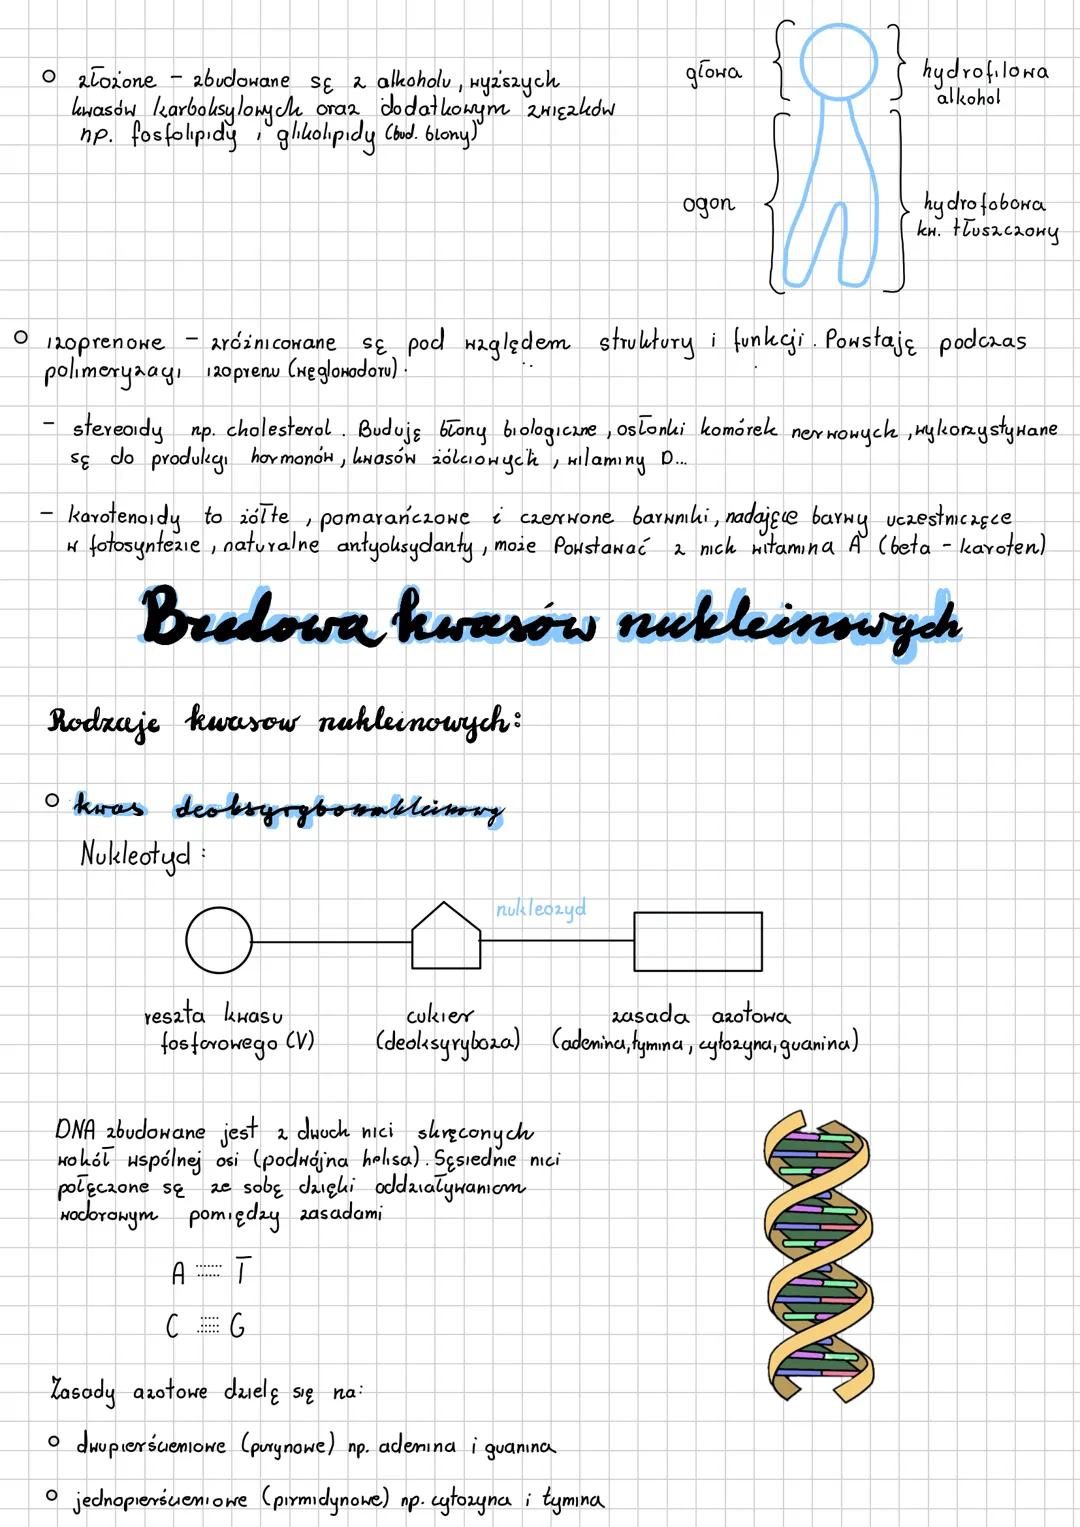 złożone - zbudowane są z alkoholu, wyższych
kwasów karboksylowych oraz dodatkowym związków
np. fosfolipidy i glikolipidy (bud. błony)
głowa
hydrofilowa
alkohol
ogon
hydrofobowa
kw. tłuszczowy
izoprenowe - zróżnicowane są pod względem struktury i funkcji. Powstają podczas
polimeryzacji izoprenu (węglowodoru).
- steroidy np. cholesterol. Budują błony biologiczne, osłonki komórek nerwowych, wykorzystywane
są do produkcji hormonów, kwasów żółciowych, witaminy D...
- karotenoidy to żółte, pomarańczowe i czerwone barwniki, nadające barwy uczestniczące
w fotosyntezie, naturalne antyoksydanty, może powstawać z nich witamina A (beta - karoten)
Budowa kwasów nukleinowych
Rodzaje kwasow nukleinowych:
kwas deoksyrybonukleinowy
Nukleotyd:
nukleozyd
reszta kwasu
fosforowego (V)
cukier
(deoksyryboza)
zasada azotowa
(adenina, tymina, cytozyna, guanina)
DNA zbudowane jest z dwóch nici skręconych
wokół wspólnej osi (podwójna helisa). Sąsiednie nici
połączone są ze sobą dzięki oddziaływaniom
wodorowym pomiędzy zasadami
A T
C G
Zasady azotowe dzielą się na:
dwupierścieniowe (purynowe) np. adenina i guanina
jednopierścieniowe (pirmidynowe) np. cytozyna i tymina